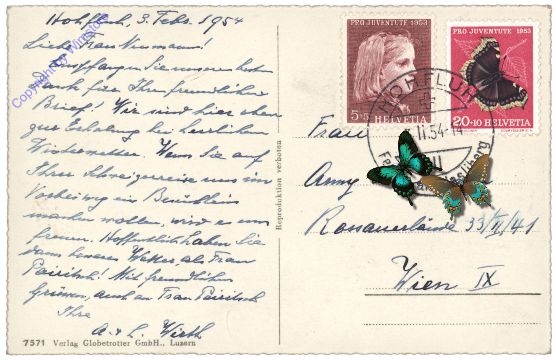 Hohfluh, 3. Febr. 1954
Liebe Frau Neumann!
Empfangen Sie unseren besten
Dank für Ihren freundlichen
Brief! Wir sind hier oben
zur Erholung bei herrlichem
Winterwetter. Wenn Sie auf
Ihrer Schweizerreise uns im
Vorbeiweg ein Besüchlein
machen wollen, wird es uns
freuen. Hoffentlich haben Sie
dann besseres Wetter als Frau
Mit freundlichen
Grüssen, auch an Frau
Ihre
A. & L. Wirth
7571 Verlag Globetrotter GmbH., Luzern
Reproduktion verboten
Copyright by
PRO JUVENTUTE 1953
5+5
HELVETIA
PRO JUVENTUTE 1953
20+10 HELVETIA
HOHFLUH
II.54-14
Frau
Anny
33/II/41
Wien IX